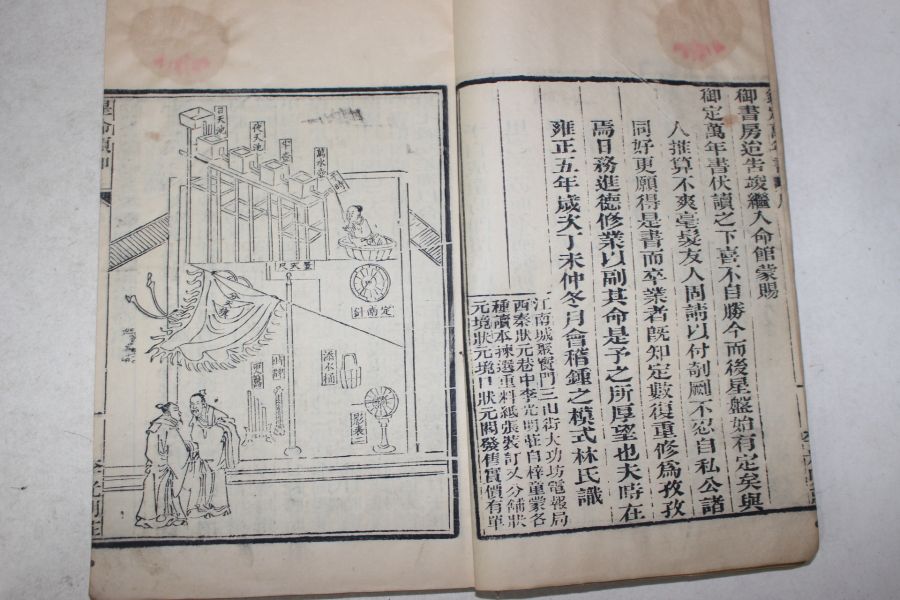 御書房造吿竣繼入命館蒙賜
御定萬年書伏讀之下喜不自勝今而後星盤始有定矣與
人推算不爽毫髮友人固請以付剞劂不忍自私公諸
同好更願得是書而卒業者旣知定數復重修爲孜孜
焉日務進德修業以副其命是予之所厚望也夫時在
雍正五年歲次丁未仲冬月會稽鍾之模式林氏識
江南城聚寶門三山街大功坊電報局
西秦狀元巷中李光明莊自梓童蒙各
種讀本揀選重料紙張裝訂又分舖狀
元境狀元境口狀元閣發售實價有單
日天池
夜天池
平壺
萬水壺
時
量天尺
定南針
添水桶
時牌
影表二